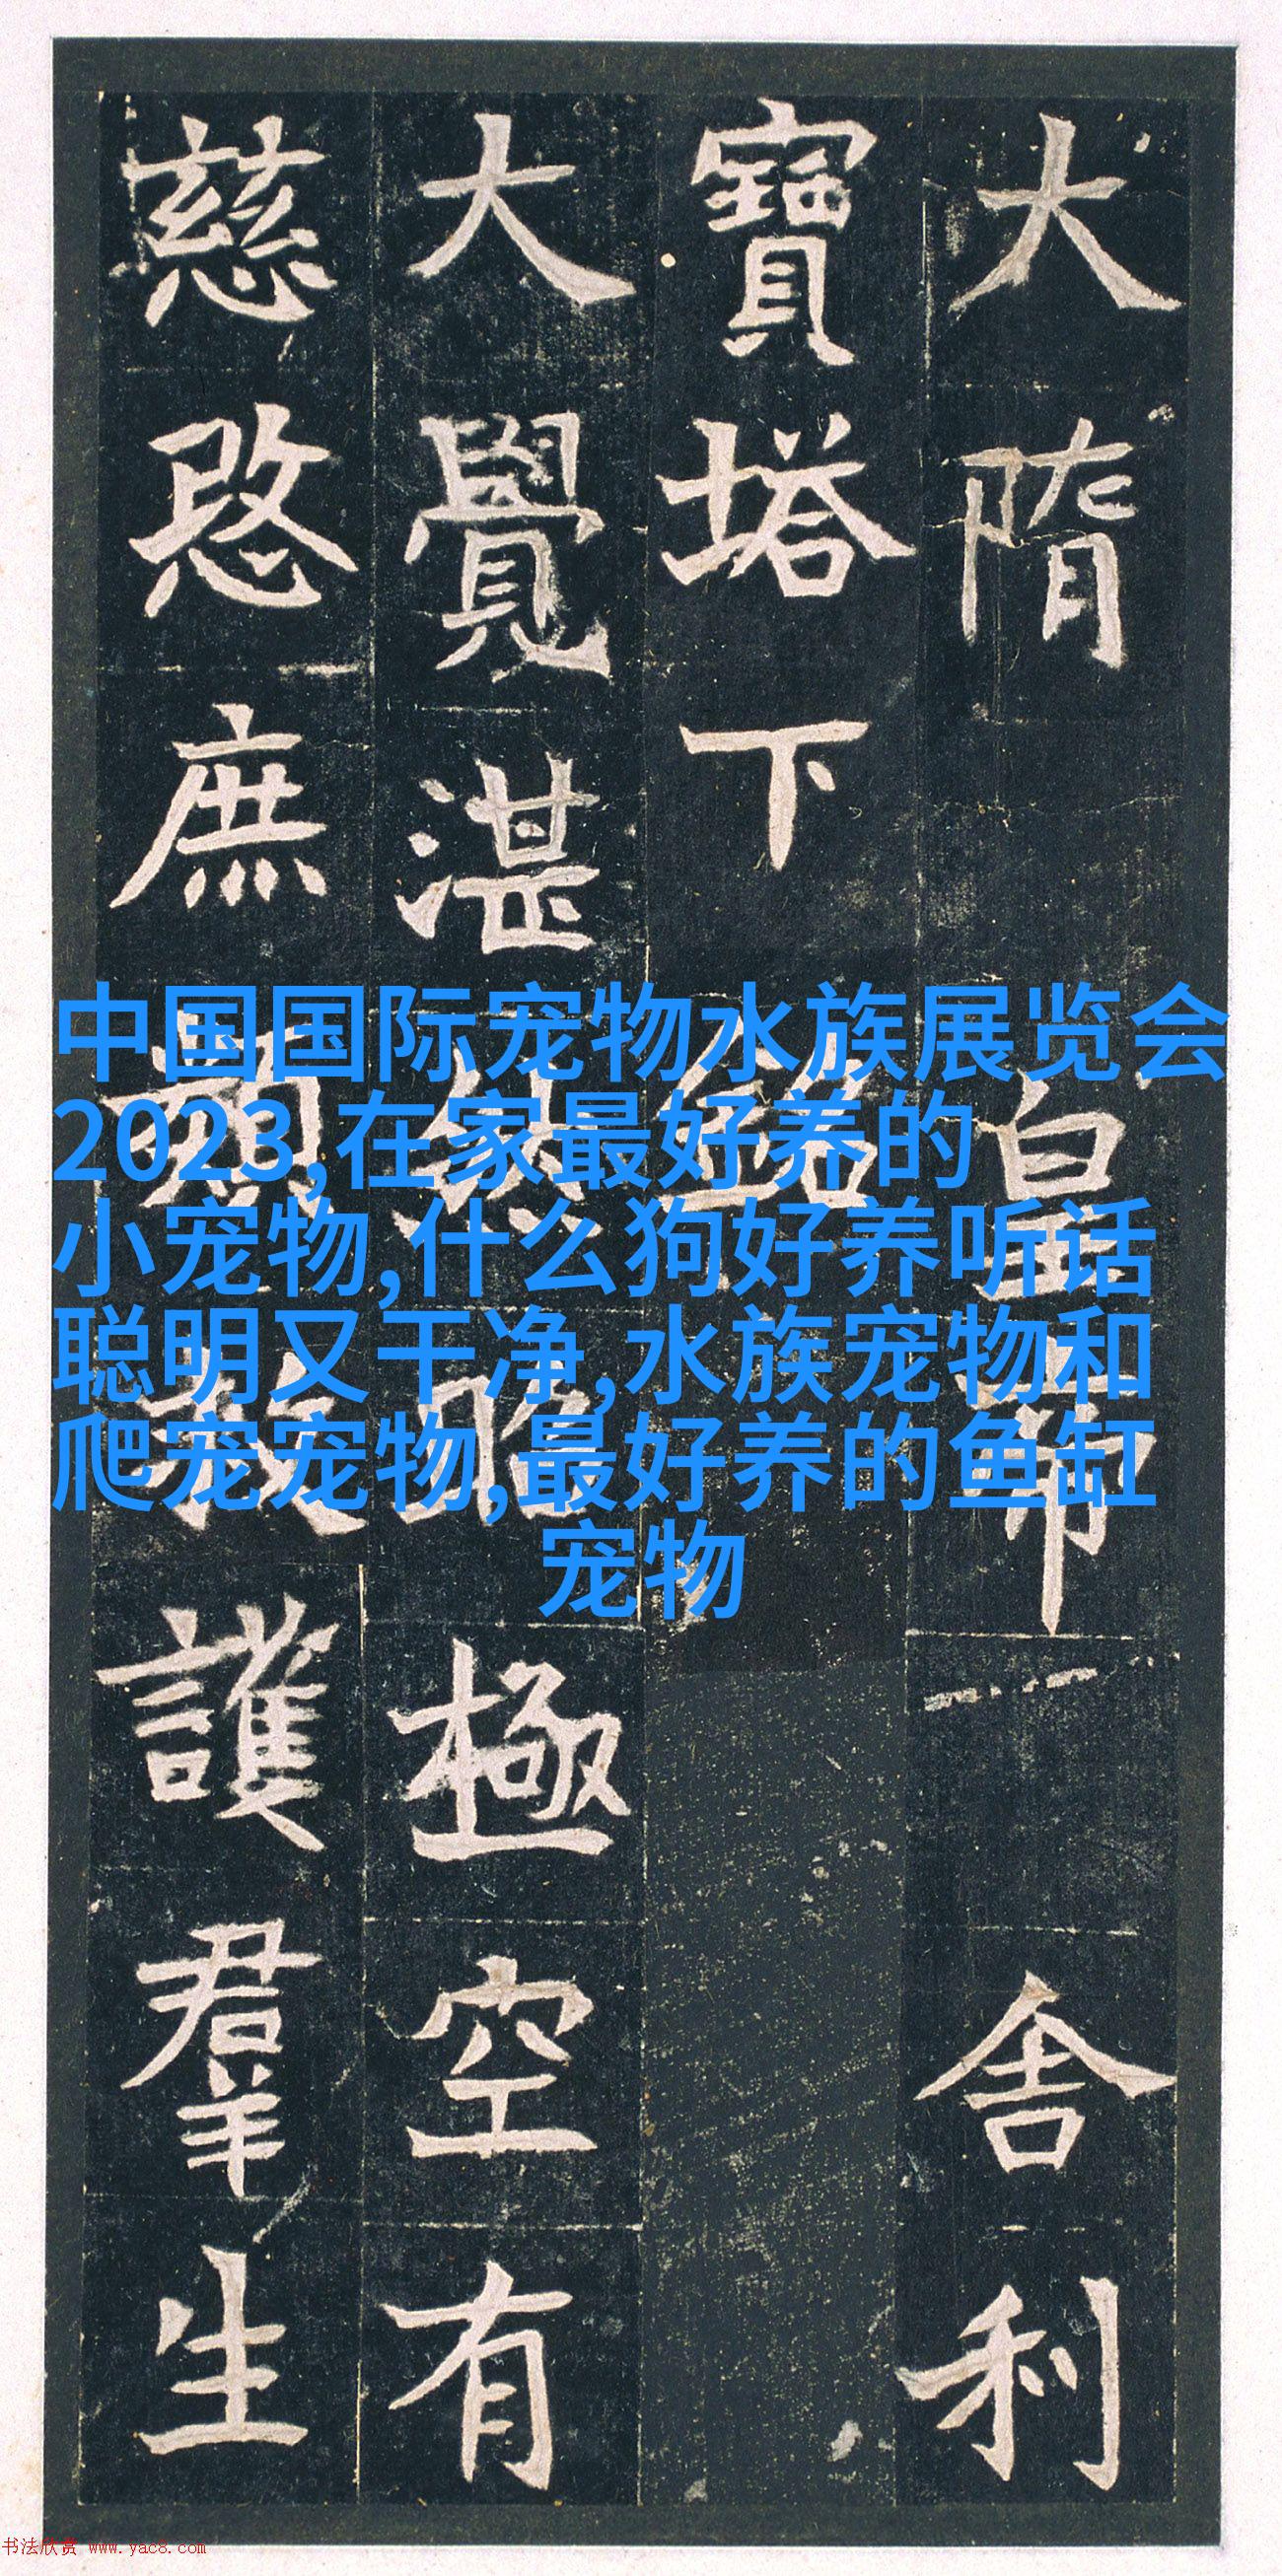 大隋皇帝舍利
寶塔下銘
大覺湛然昭極空有
慈愍庶救護羣生
中国国际宠物水族展览会
2023,在家最好养的
小宠物,什么狗好养听话
聪明又干净,水族宠物和
爬宠宠物,最好养的鱼缸
宠物
书法欣赏 www.yac8.com